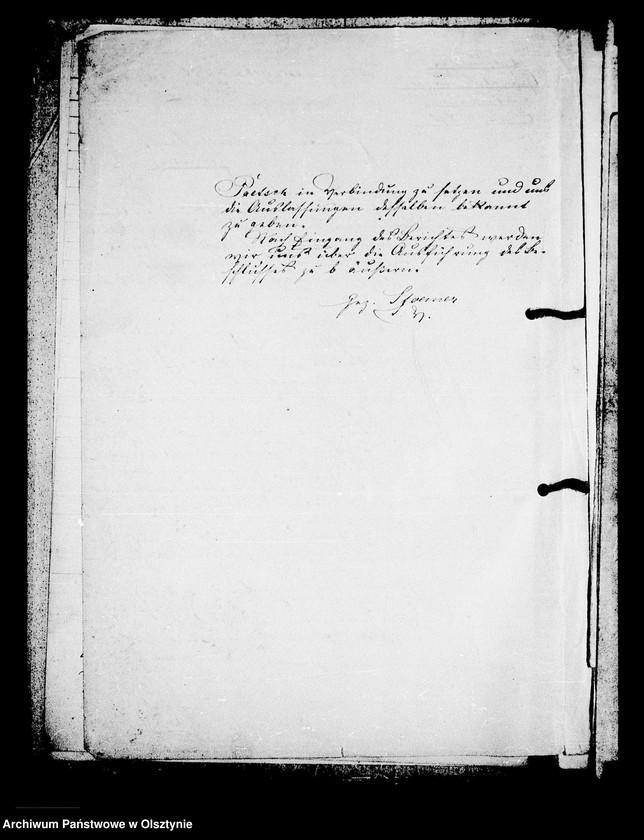 Paetsch in Verbindung zu setzen und uns
die Auslassungen desselben bekannt
zu geben.
Nach Eingang des Berichtes werden
wir uns über die Ausführung des Be-
schlusses zu 6 äußern.
gez.
Archiwum Państwowe w Olsztynie